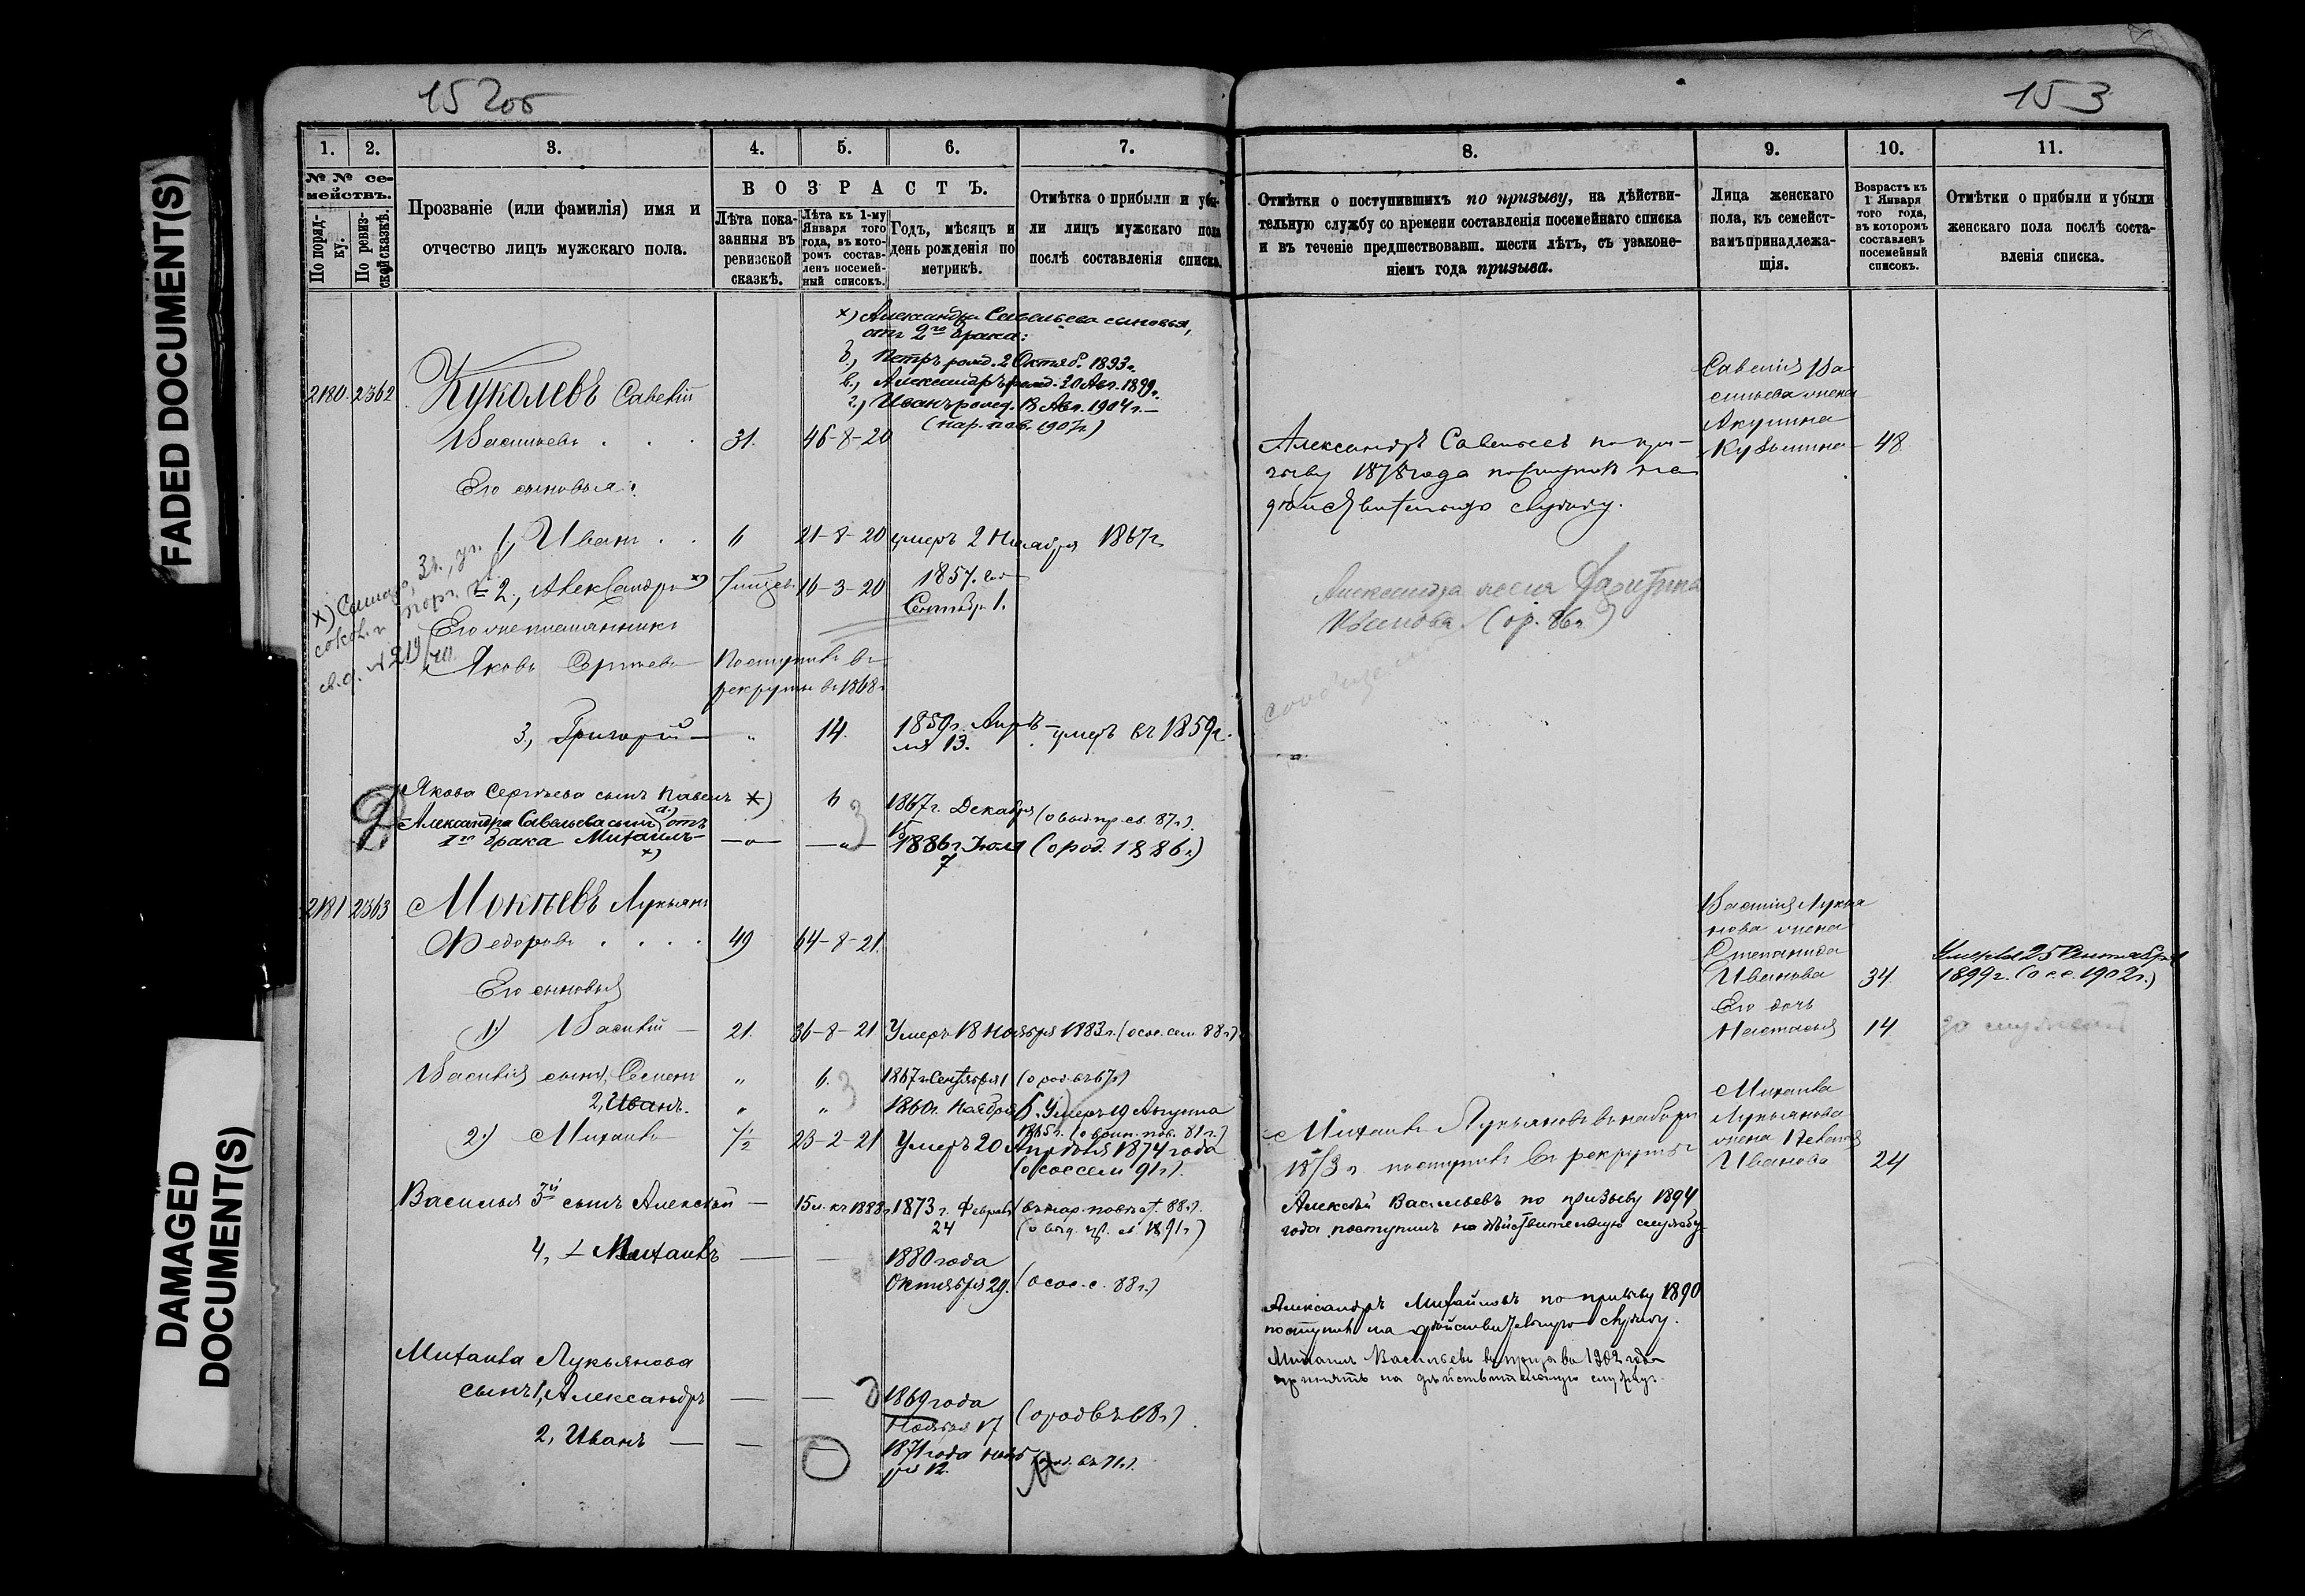 152об
153
FADED DOCUMENT(S)
DAMAGED
DOCUMENT(S)
1.
2.
3.
4.
5.
6.
7.
№ № се-
мействъ.
По поряд-
ку.
По ревиз-
ской сказкѣ.
Прозваніе (или фамилія) имя и
отчество лицъ мужскаго пола.
ВОЗРАСТЪ.
Лѣта пока-
занныя въ
ревизской
сказкѣ.
Лѣта къ 1-му
Января того
года, въ кото-
ромъ состав-
ленъ посемей-
ный списокъ.
Годъ, мѣсяцъ и
день рожденія по
метрикѣ.
Отмѣтка о прибыли и убы-
ли лицъ мужскаго пола
послѣ составленія списка.
х) Александра Савельева сыновья,
отъ 2го брака:
б, Петръ рожд. 2 Октяб. 1893г.
в, Александръ рожд. 20 Авг. 1899г.
г, Иванъ рожд. 13 Авг. 1904г.
(нар. пов. 1907г)
2180 2362 Куколевъ Савелій
Васильевъ . . . 31. 46-8-20
Его сыновья:
1, Иванъ . . 6 21-8-20 умеръ 2 Ноября 1867г
2, Александръ х) 16-3-20 1857. год
Сентябр 1.
Яковъ Сергѣевъ Поступилъ въ
рекруты въ 1868г
3, Григорій — " 14. 1850г. Апрѣ-
ля 13. умеръ въ 1859г.
Якова Сергѣева сынъ Павелъ х) 6 1867г. Декабря (о вып. пр. св. 87г.)
Александра Савельева сынъ отъ
1го брака Михаилъ — 1886г. Іюля (о род. 1886г)
х) 7
2181 2363 Мокѣевъ Лукьянъ
Федоровъ . . . . 49 64-8-21.
Его сыновья
1) Василій — 21. 36-8-21 Умеръ 18 Ноября 1883г. (о сос. сем 88г)
Василія сынъ 1, Семенъ " 6. 1867г Сентября 1 (о род. въ 67г)
2, Иванъ. " " 1860г. Ноября 6. Умеръ 19 Августа
1865г. (о воин. пов. 81г.)
2) Михаилъ 7½ 23-2-21 Умеръ 20 Апрѣля 1874 года
(о сос сем 91г).
Василья 3й сынъ Алексѣй — 15 л. къ 1888г 1873г. Февраля
24
4, Михаилъ — 1880 года
Октября 29. (о сос. с. 88г.)
Михаила Лукьянова
сынъ 1, Александръ — — 1869 года
Ноября 17
2, Иванъ — — 1871 года нояб
ря 12.
8.
9.
10.
11.
Отмѣтки о поступившихъ по призыву, на дѣйстви-
тельную службу со времени составленія посемейнаго списка
и въ теченіе предшествовавш. шести лѣтъ, съ узаконе-
ніемъ года призыва.
Лица женскаго
пола, къ семейст-
вамъ принадлежа-
щія.
Возрастъ къ
1 Января
того года,
въ которомъ
составленъ
посемейный
списокъ.
Отмѣтки о прибыли и убыли
женскаго пола послѣ соста-
вленія списка.
Александръ Савельевъ по при-
зыву 1878 года поступилъ на
дѣйствительную службу.
Савелія Ва
сильева жена
Акулина
Кузьмина 48
Александра жена
Иванова. (ор. 86г)
Василія Лукья
нова жена
Степанида
Иванова 34
Умерла 25 Сентября
1899г. (о с.с. 1902г.)
Его дочь
Настасья 14
за мужемъ
Михаилъ Лукьяновъ въ наборъ
1873г поступилъ въ рекруты
Михаила
Лукьянова
жена Пелагея
Иванова 24
Алексѣй Васильевъ по призыву 1894
года поступилъ на дѣйствительную службу
Александръ Михайловъ по призыву 1890
поступилъ на дѣйствительную службу.
Михаилъ Васильевъ въ призывъ 1902 года
принятъ на дѣйствительную службу.